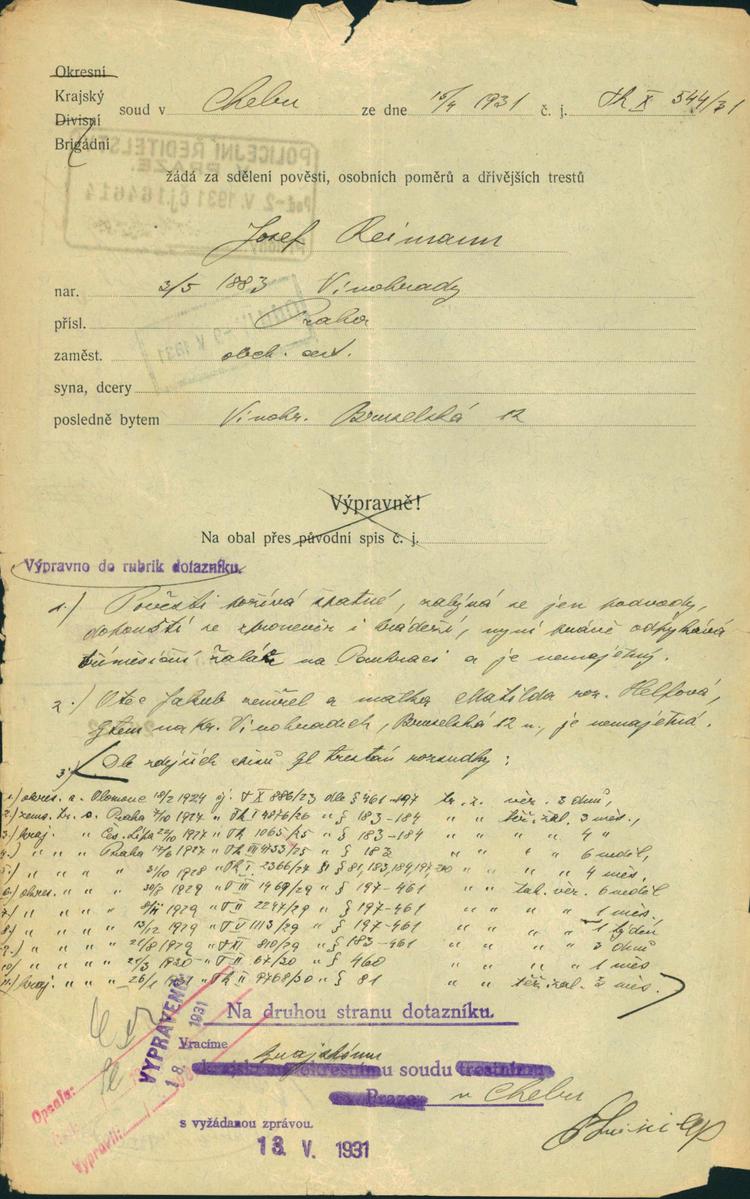 Okresní
Krajský
Divisní
Brigádní
soud v Chebu ze dne 15/4 1931 č. j. Tk X 544/31
POLICEJNÍ ŘEDITELSTVÍ
V PRAZE.
Pod -2. V. 1931 čj. 164614
žádá za sdělení pověsti, osobních poměrů a dřívějších trestů
Josef Reimann
nar. 3/5 1883 Vinohrady
přísl. Praha
-9. V. 1931
zaměst. obch.
syna, dcery
posledně bytem Vinohr. Bruselská 12
Výpravně!
Na obal přes původní spis č. j.
Výpravno do rubrik dotazníku.
1./ Pověsti požívá špatné, zabývá se jen podvody,
dopouští se zpronevěr i krádeží, nyní právě odpykává
tříměsíční žalář na Pankráci a je nemajetný.
2./ Otec Jakub zemřel a matka Matilda roz. Helfová,
bytem na Kr. Vinohradech, Bruselská 12 n., je nemajetná.
3./ Dle zdejších spisů byl trestán rozsudky:
1./ okres. s. Olomouc 18/2 1924 čj. T X 886/23 dle § 461-197 tr. z. věz. 3 dnů,
2./ zems. tr. s. Praha 7/10 1927 " Tk I 4876/26 " § 183-184 " " těž. žal. 3 měs.,
3./ kraj. " Čes. Lípa 22/10 1927 " Tk 1065/25 " § 183-184 " " " " 4 "
4./ " " Praha 17/6 1927 " Tk III 4733/25 " § 183 " " " " 6 neděl,
5./ " " " 31/10 1928 " Tk I 2366/27 §§ 81, 183, 184, 197, 200 " " " " 4 měs.
6./ okres. " " " 30/8 1929 " T III 1469/29 " § 197-461 " " tuh. věz. 6 neděl
7./ " " " " 8/11 1929 " T II 2247/29 " § 197-461 " " " " 1 měs.
8./ " " " " 13/12 1929 " T V 1113/29 " § 197-461 " " " " 1 týden
9./ " " " " 21/8 1929 " T XI 810/29 " § 183-461 " " " " 3 dnů
10./ " " " " 21/3 1930 " T II 67/30 " § 460 " " " " 1 měs
11./ kraj. " " " 26/1 1931 " Tk II 9768/30 " § 81 " " těž. žal. 3 měs.
Na druhou stranu dotazníku.
VYPRAVENO
18. 1931
Vracíme
krajskému
okresnímu soudu trestnímu
Praze v Chebu
s vyžádanou zprávou.
13. V. 1931
Opsala:
Vypravil: